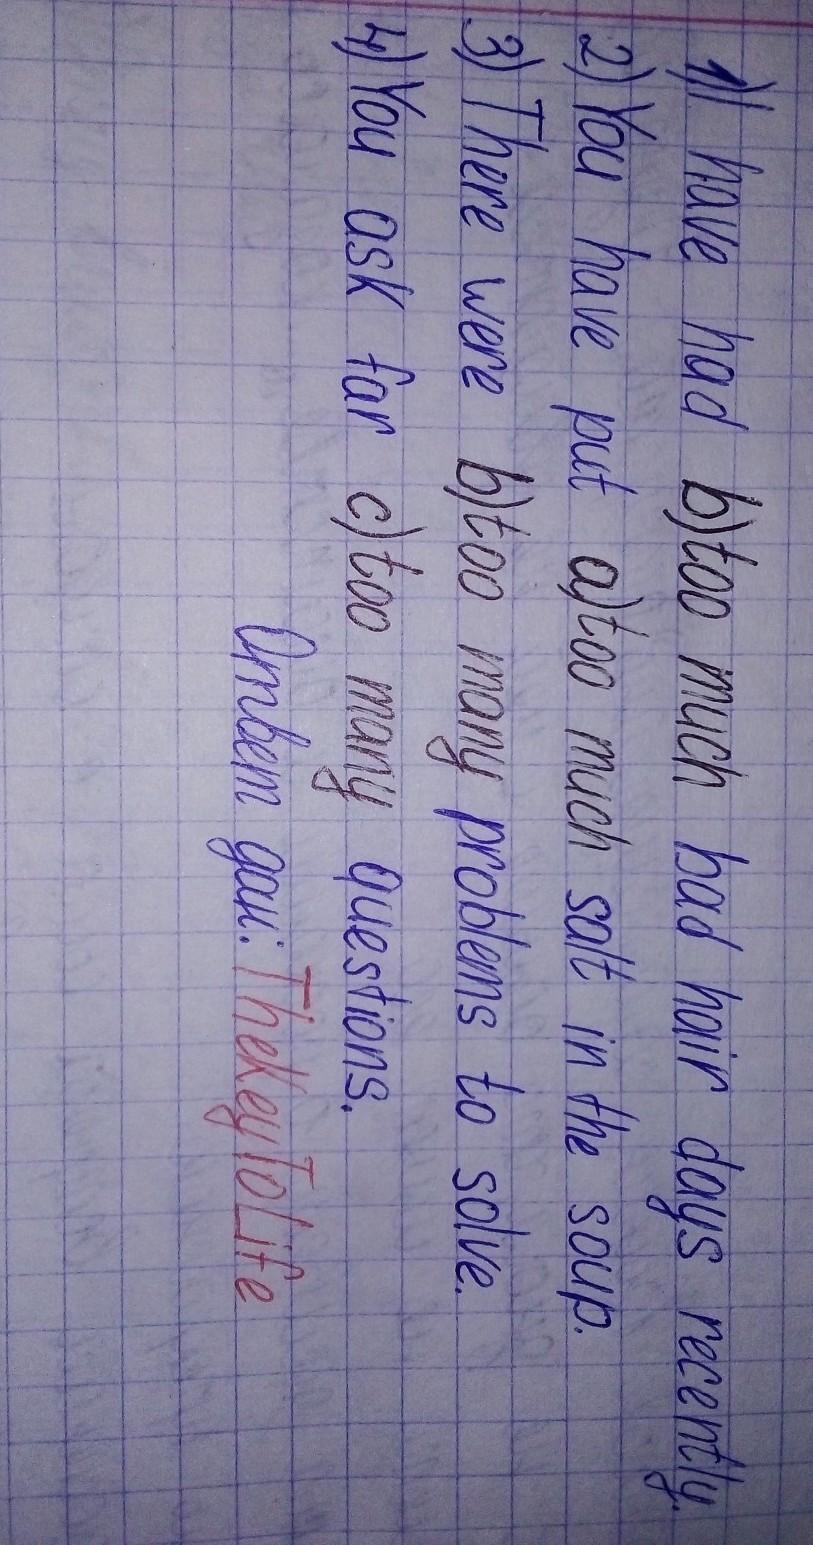 1) I have had b) too much bad hair days recently.
2) You have put a) too much salt in the soup.
3) There were b) too many problems to solve.
4) You ask far c) too many questions.
Ответ дал: TheKeyToLife